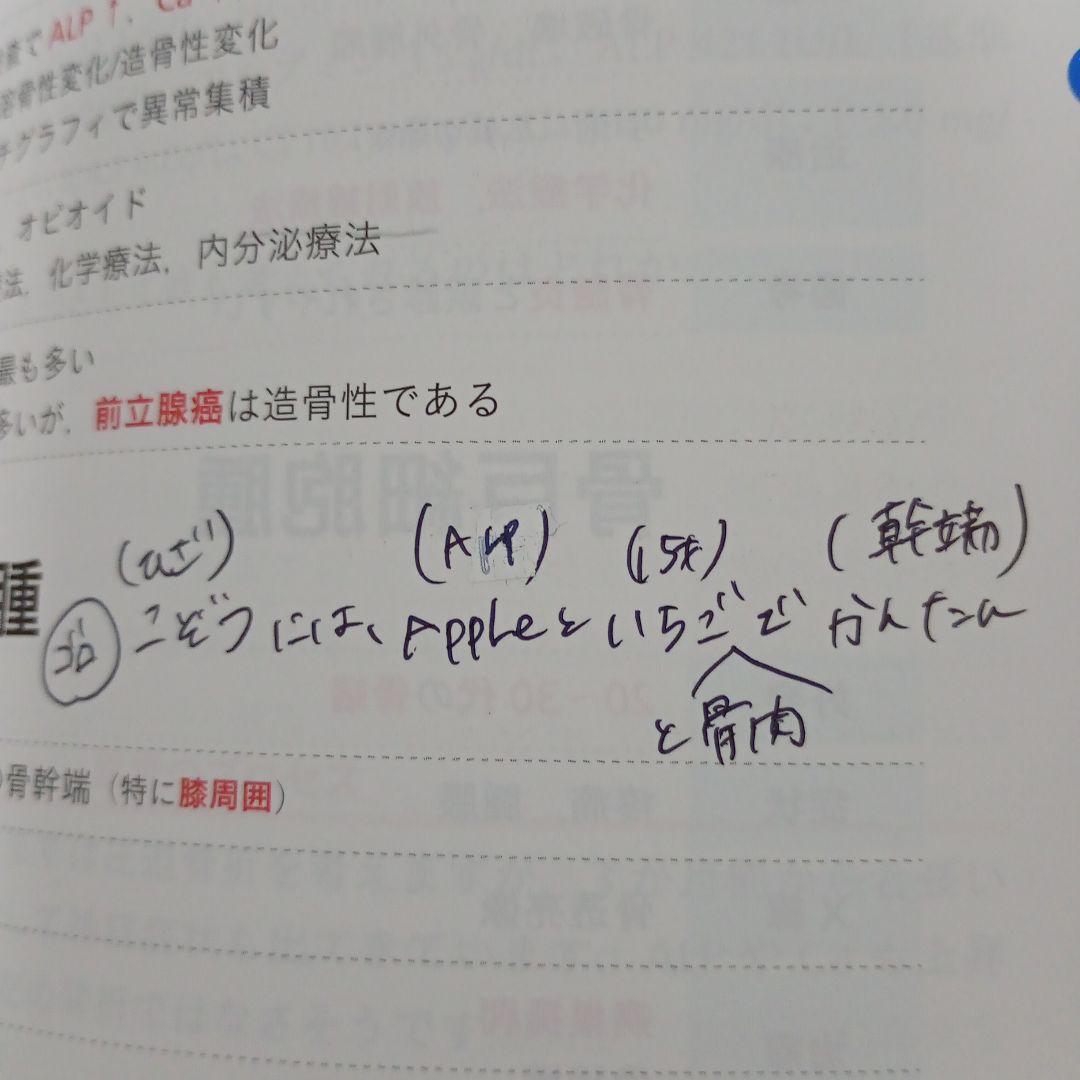 査でALP↑、Ca
溶骨性変化/造骨性変化
チグラフィで異常集積
オピオイド
法，化学療法，内分泌療法
最も多い
多いが，前立腺癌は造骨性である
(ひざ) (ALP) (15才) (幹端)
腫 ゴロ こぞうには、Appleといちごでかんたん
と骨肉
骨幹端（特に膝周囲）